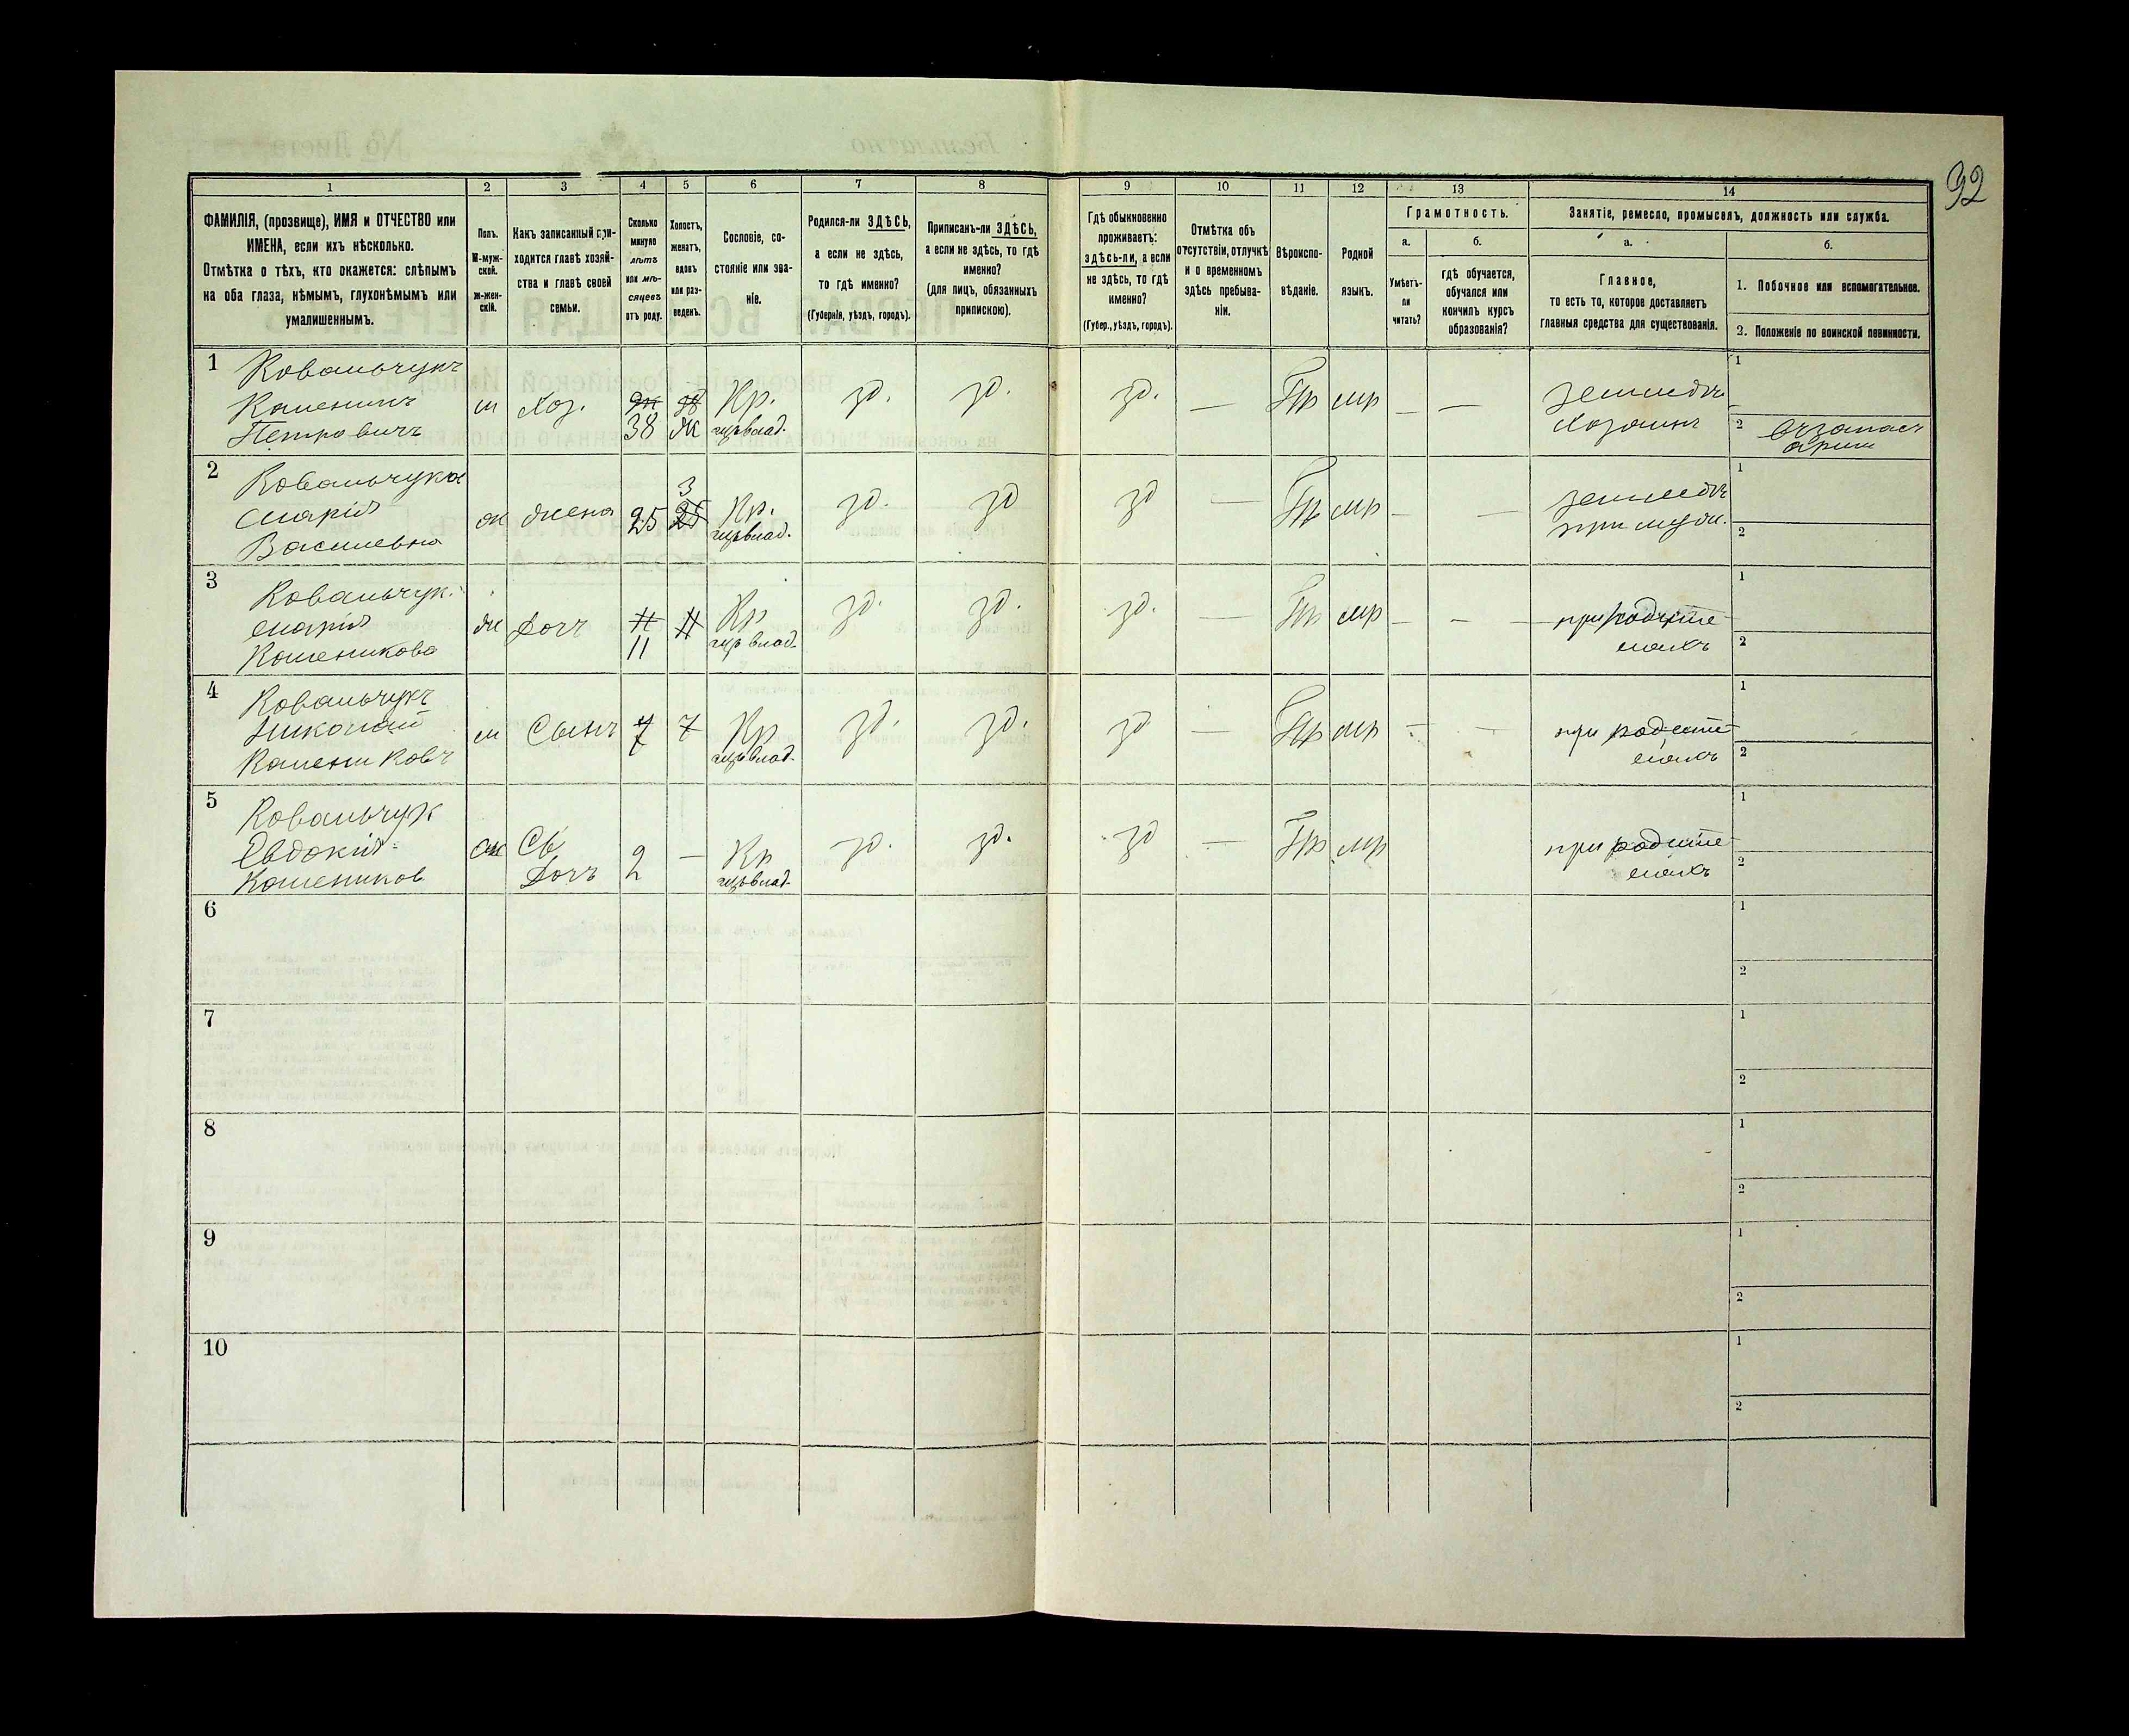 92
1 2 3 4 5 6 7 8 9 10 11 12 13 14
ФАМИЛІЯ, (прозвище), ИМЯ и ОТЧЕСТВО или
ИМЕНА, если ихъ нѣсколько.
Отмѣтка о тѣхъ, кто окажется: слѣпымъ
на оба глаза, нѣмымъ, глухонѣмымъ или
умалишеннымъ.
Полъ.
М-муж-
ской.
ж-жен-
скій.
Какъ записанный при-
ходится главѣ хозяй-
ства и главѣ своей
семьи.
Сколько
минуло
лѣтъ
или мѣ-
сяцевъ
отъ роду.
Холостъ,
женатъ,
вдовъ
или раз-
веденъ.
Сословіе, со-
стояніе или зва-
ніе.
Родился-ли ЗДѢСЬ,
а если не здѣсь,
то гдѣ именно?
(Губернія, уѣздъ, городъ).
Приписанъ-ли ЗДѢСЬ,
а если не здѣсь, то гдѣ
именно?
(для лицъ, обязанныхъ
припискою).
Гдѣ обыкновенно
проживаетъ:
здѣсь-ли, а если
не здѣсь, то гдѣ
именно?
(Губер., уѣздъ, городъ).
Отмѣтка объ
отсутствіи, отлучкѣ
и о временномъ
здѣсь пребыва-
ніи.
Вѣроиспо-
вѣданіе.
Родной
языкъ.
Грамотность.
а.
Умѣетъ-
ли
читать?
б.
гдѣ обучается,
обучался или
кончилъ курсъ
образованія?
Занятіе, ремесло, промыселъ, должность или служба.
а.
Главное,
то есть то, которое доставляетъ
главныя средства для существованія.
б.
1. Побочное или вспомогательное.
2. Положеніе по воинской повинности.
1 Ковальчукъ
Петровичъ
м Хоз. 38 ж Кр. зд. зд. зд. — Пр мр — —
земледѣ
Хозяинъ
1
2 въ запасѣ
арміи
2 Ковальчука
Марія
Василевна
ж жена 25 3 Кр. зд. зд зд — Пр мр — —
земледѣ
при муж.
1
2
3 Ковальчук.
Марія
ж Дочь 11 Кр зд. зд. зд. — Пр мр — —
при родите
ляхъ
1
2
4 Ковальчукъ
Николай
м Сынъ 7 7 Кр зд. зд. зд — Пр мр — —
при родите
ляхъ
1
2
5 Ковальчук
Евдокія
ж Дочь 2 — Кр зд. зд. зд — Пр мр
при родите
ляхъ
1
2
6 1
2
7 1
2
8 1
2
9 1
2
10 1
2